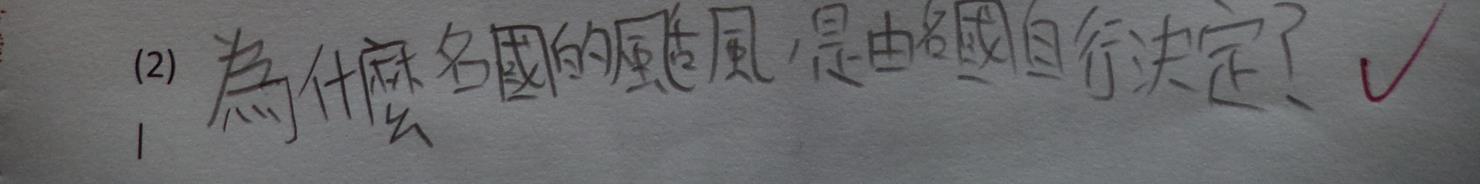 (2) 為什麼各國的颱風,是由各國自行決定?
1